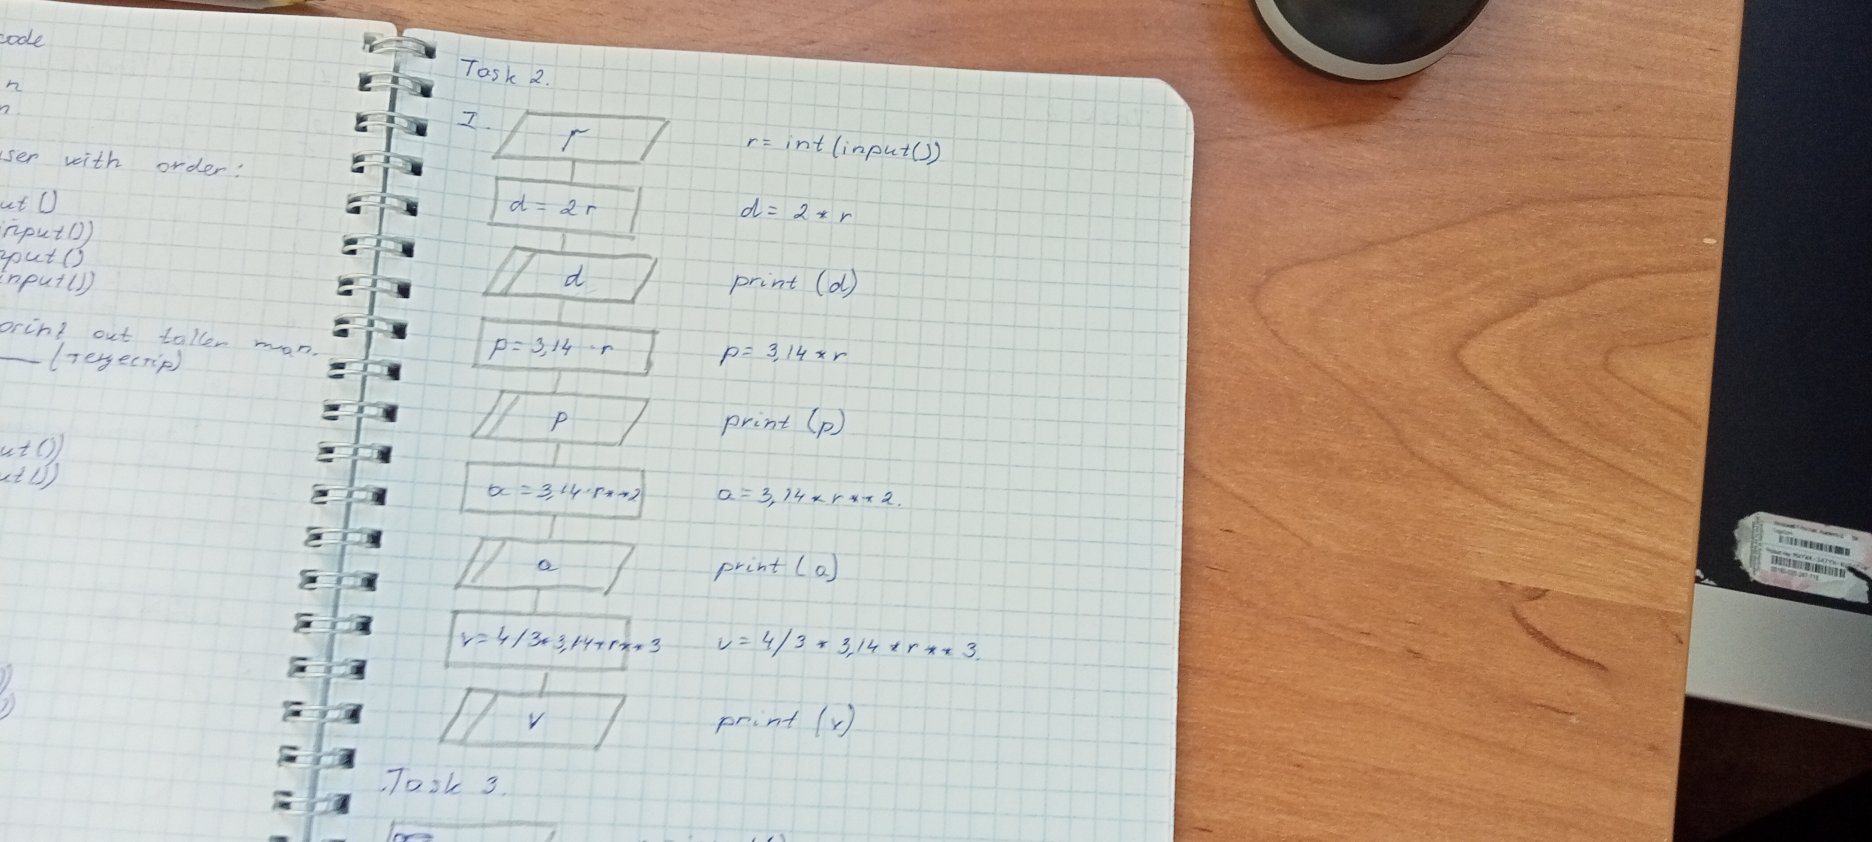 code
n
n
user with order:
ut()
input())
nput()
input())
print out taller man.
ut())
ut())
Task 2.
I.
r
r = int(input())
d = 2r
d = 2 * r
d
print (d)
p = 3,14 · r
p = 3,14 * r
p
print (p)
a = 3,14 · r**2
a = 3,14 * r ** 2.
a
print (a)
v = 4/3*3,14*r**3
v = 4/3 * 3,14 * r ** 3.
v
print (v)
Task 3.